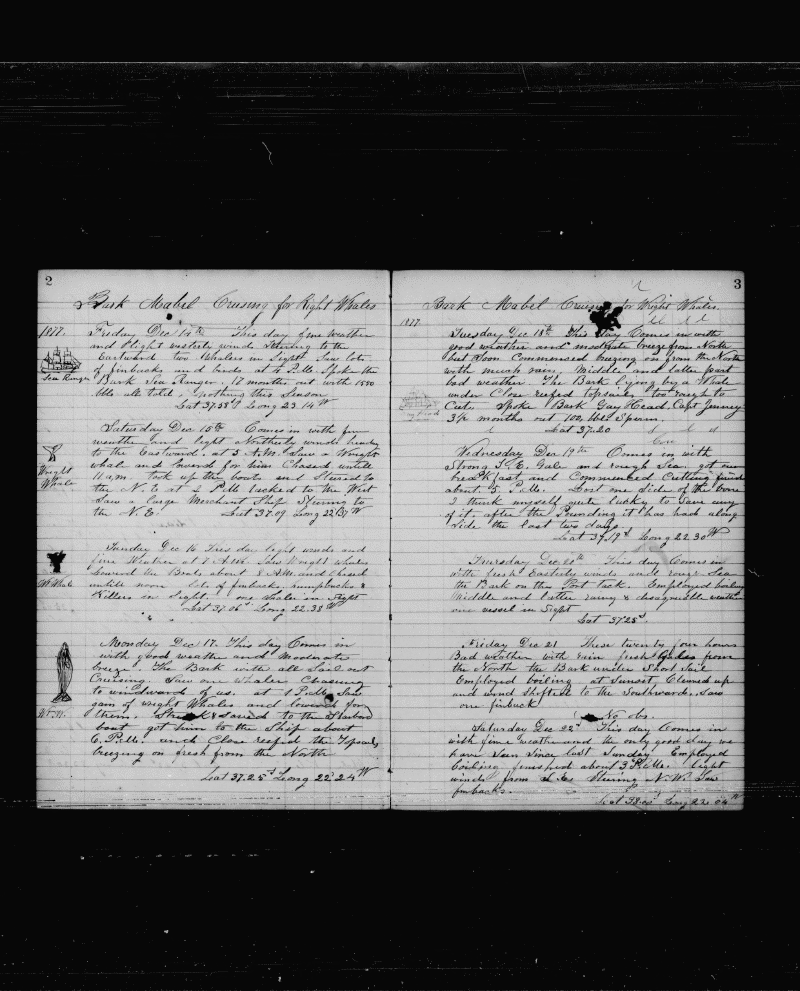 2
Bark Mabel Cruising for Right Whales
1877. Friday Dec 14th This day fine weather
and light westerly winds Stering to the
Eastward two Whalers in Sight Saw lots
of finbacks and birds at 4 P.M. Spoke the
Sea Ranger Bark Sea Ranger. 17 months out with 1550
bbls all told. nothing this Season
Lat 37.58 S Long 23.14 W
Saturday Dec 15th Comes in with fine
weather and light Northerly winds
to the Eastward. at 5 A.M. Saw a Wright
Wright Whale whale and lowered for him Chased untill
11 a.m. took up the boats and Steared to
the N.E. at 2 P.M. tacked to the West
Saw a large Merchant Ship Stering to
the N.E. Lat 37.09 Long 22.37 W
Sunday Dec 16 This day light winds and
fine Weather at 7 A.M. Saw Wright whales
lowered the Boats about 8 A.M. and Chased
Whale untill noon lots of finbacks humpbacks &
Killers in Sight. one whaler in Sight
" " Lat 37.06 S Long 22.38 W
Monday Dec 17. This day Comes in
with good weather and Moderate
breeze The Bark with all Sail out
Cruising. Saw one whaler Chasing
to windward of us. at 1 P.M. Saw
gam of wright Whales and lowered for
them. Struck & saved to the Starbord
boat got him to the Ship about
6 P.M. and Close reefed the Topsails
breezing on fresh from the North
Lat 37.25 S Long 22.24 W
3
Bark Mabel Cruising for Wright Whales.
1877. Tuesday Dec 18th This day Comes in with
good weather and moderate breeze from North
but Soon Commensed breezing on from the North
with much rain. Middle and latter part
bad weather. The Bark lying by a Whale
under Close reefed topsails too rough to
Cut. Spoke Bark Gay Head, Capt Jenney
months out 700 bbls Sperm.
Lat 37.20
Wednesday Dec 19th Comes in with
Strong S.E. Gale and rough Sea. got our
breakfast and Commenced Cutting finished
about 5 P.M. Lost one Side of the bone
I think myself quite lucky to Save any
of it after the Pounding it has had along
Side the last two days
Lat 37.19 S Long 22.30 W
Thursday Dec 20th This day Comes in
with fresh Easterly winds and rough Sea
the Bark on the Port tack. Employed boiling
Middle and latter rainy & disagreeable weather
one vessel in Sight
Lat 37.25 S.
Friday Dec 21 These twenty four hours
Bad weather with rain fresh Gales from
the North the Bark under Short Sail
Employed boiling at Sunset Cleared up
and wind shifted to the Southward. Saw
one finback
No obs.
Saturday Dec 22d This day Comes in
with fine weather and the only good day we
have seen Since last Sunday Employed
boiling finished about 3 P.M. light
winds from Stering N.W. Saw
finbacks.
Lat 38.03 Long 22.04 W